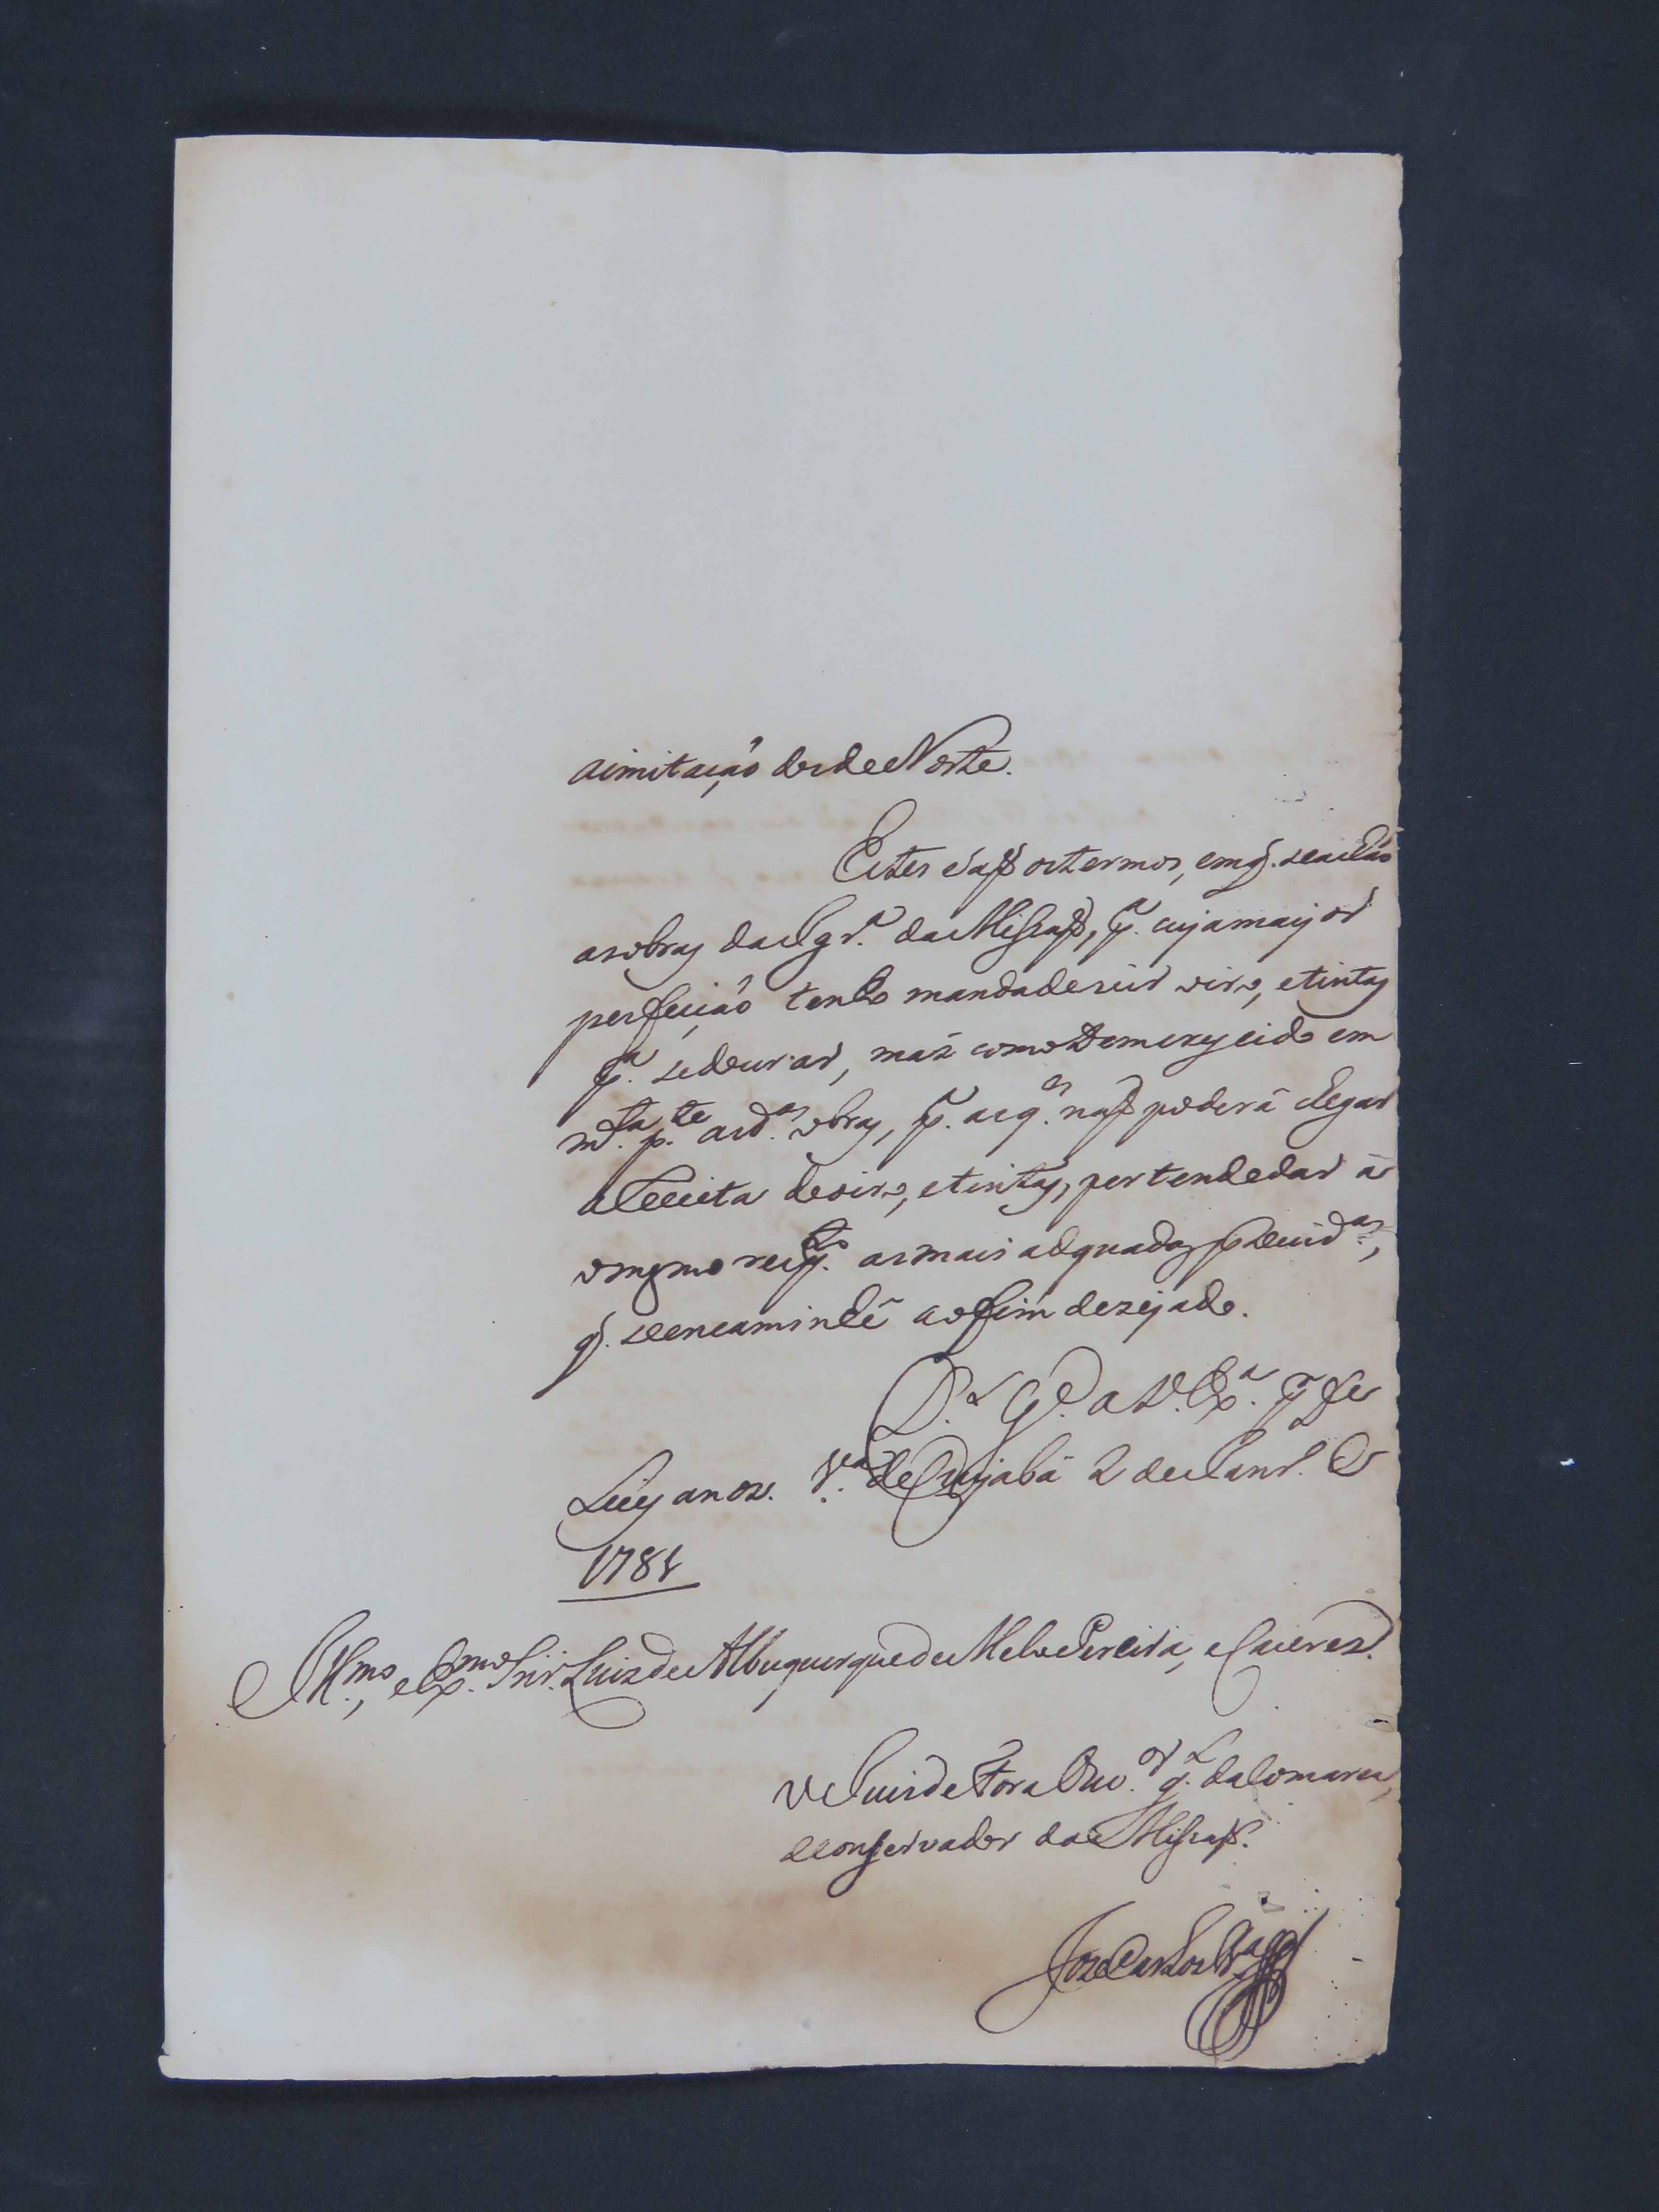 aimitação dos de Norte.
Estes saõ os termos, em q. se achaõ
as obras da Igr.ª da Missaõ, p.ª cuja mayor
perfeiçaõ tenho mandado vir oiro, e tintas
p.ª se dourar, mas como tem excedido em
m.ta p.te as d.as obras, p.ª as q.es naõ poderá chegar
a Receita de oiro, e tintas, pertendo dar á
o mesmo resp.to as mais adequadas provid.as,
q. se encaminhê ao fim dezejado.
D.s G.e a V. Ex.ª p.r fe
Lizes anos. V.ª do Cuyabá 2 de Janr.º de
1781
Ill.mo, e Ex.mo Snr. Luis de Albuquerque de Mello Pereira, e Caceres.
O Juis de Fora Ouv.or g.l da Comarca,
e Conservador da Missaõ.
Joze Carlos Pr.ª